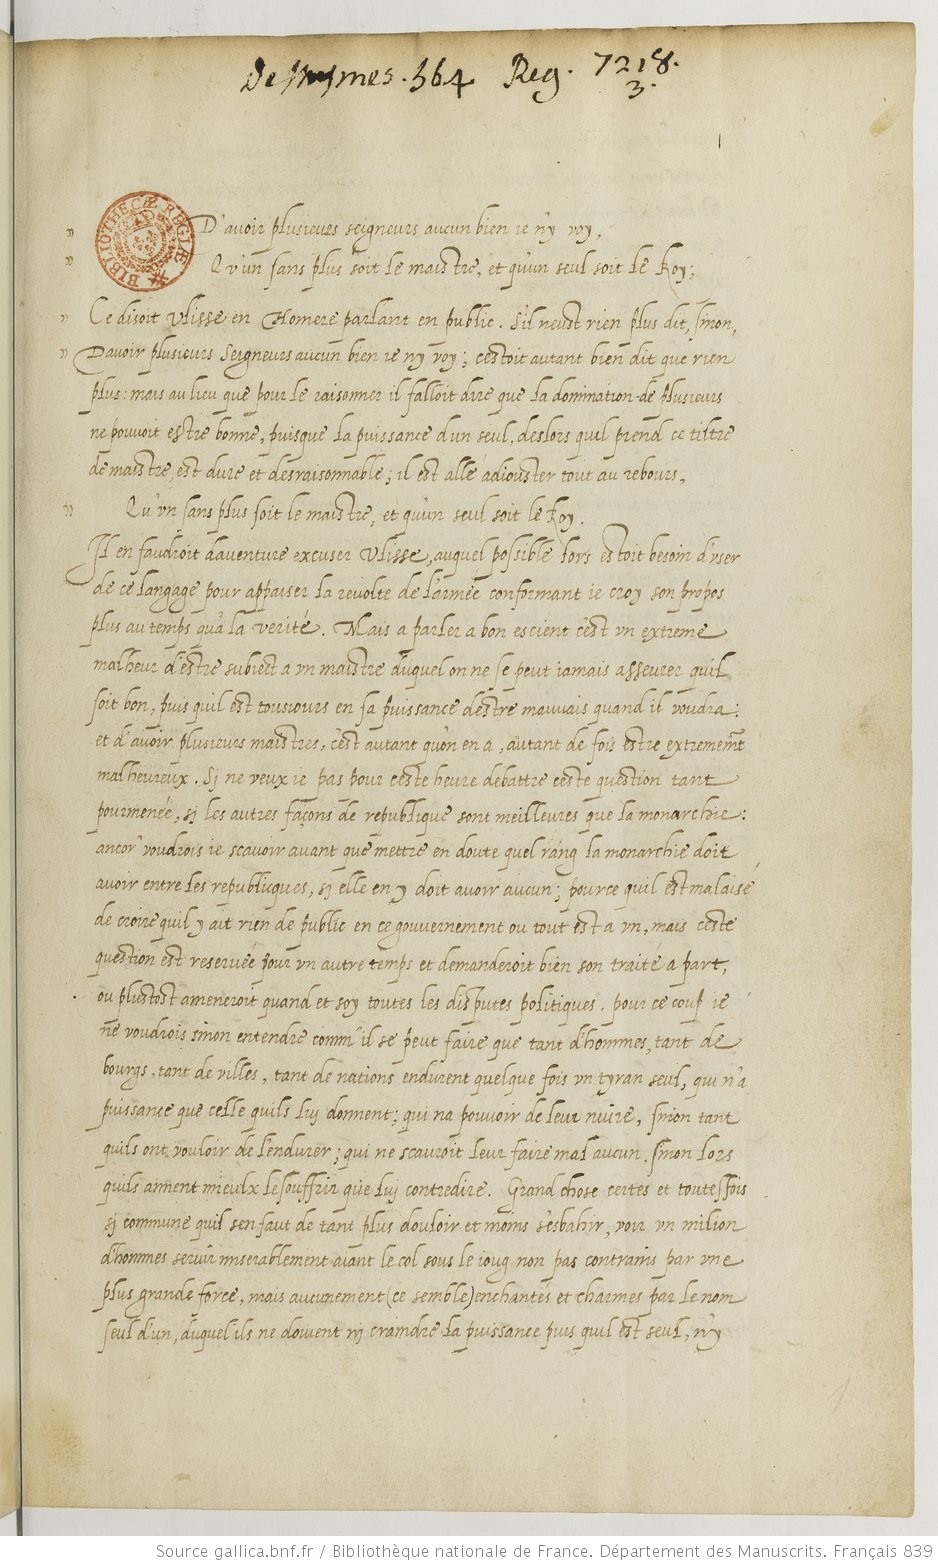 De mesmes. 564 Reg. 7218.
3.
1
BIBLIOTHECÆ REGIÆ
D'avoir plusieurs seigneurs aucun bien ie n'y voy,
Qu'un sans plus soit le maistre, et qu'un seul soit le Roy;
Ce disoit Ulisse en Homere parlant en public. S'il neust rien plus dit, sinon,
Davoir plusieurs Seigneurs aucun bien ie ny voy; cestoit autant bien dit que rien
plus: mais au lieu que pour le raisonner il falloit dire que la domination de plusieurs
ne pouvoit estre bonne, puisque la puissance dun seul, deslors quil prend ce tiltre
de maistre, est dure et desraisonnable; il est allé adiouster tout au rebours,
Qu'vn sans plus soit le maistre, et qu'un seul soit le Roy.
Il en faudroit daventure excuser Ulisse, auquel possible lors estoit besoin d'vser
de ce langage pour appaiser la reuolte de l'armee conformant ie croy son propos
plus au temps qu'a la verité. Mais a parler a bon escient c'est vn extreme
malheur d'estre subiect a vn maistre duquel on ne se peut iamais asseurer quil
soit bon, puis quil est tousiours en sa puissance d'estre mauuais quand il voudra:
et d'auoir plusieurs maistres, c'est autant qu'on en a, autant de fois estre extrememt
malheureux. Si ne veux ie pas pour ceste heure debattre ceste question tant
pourmenée, si les autres façons de republique sont meilleures que la monarchie:
ancor voudrois ie scauoir auant que mettre en doute quel rang la monarchie doit
auoir entre les republicques, si elle en y doit auoir aucun; pource quil est malaisé
de croire quil y ait rien de public en ce gouuernement ou tout est a vn, mais ceste
question est reseruée pour vn autre temps et demanderoit bien son traité a part,
ou plustost ameneroit quand et soy toutes les disputes politiques. pour ce coup ie
ne voudrois sinon entendre comm'il se peut faire que tant d'hommes, tant de
bourgs, tant de villes, tant de nations endurent quelque fois vn tyran seul, qui n'a
puissance que celle quils luy donnent; qui na pouuoir de leur nuire, sinon tant
quils ont vouloir de l'endurer; qui ne scauroit leur faire mal aucun, sinon lors
quils aiment mieulx le souffrir que luy contredire. Grand chose certes et toutesfois
si commune quil sen faut de tant plus douloir et moins s'esbahir, voir vn milion
d'hommes seruir miserablement aiant le col sous le ioug non pas contrains par vne
plus grande force, mais aucunement (ce semble) enchantes et charmes par le nom
seul d'un, duquel ils ne doiuent ni craindre la puissance puis quil est seul, n'y
1
Source gallica.bnf.fr / Bibliothèque nationale de France. Département des Manuscrits. Français 839